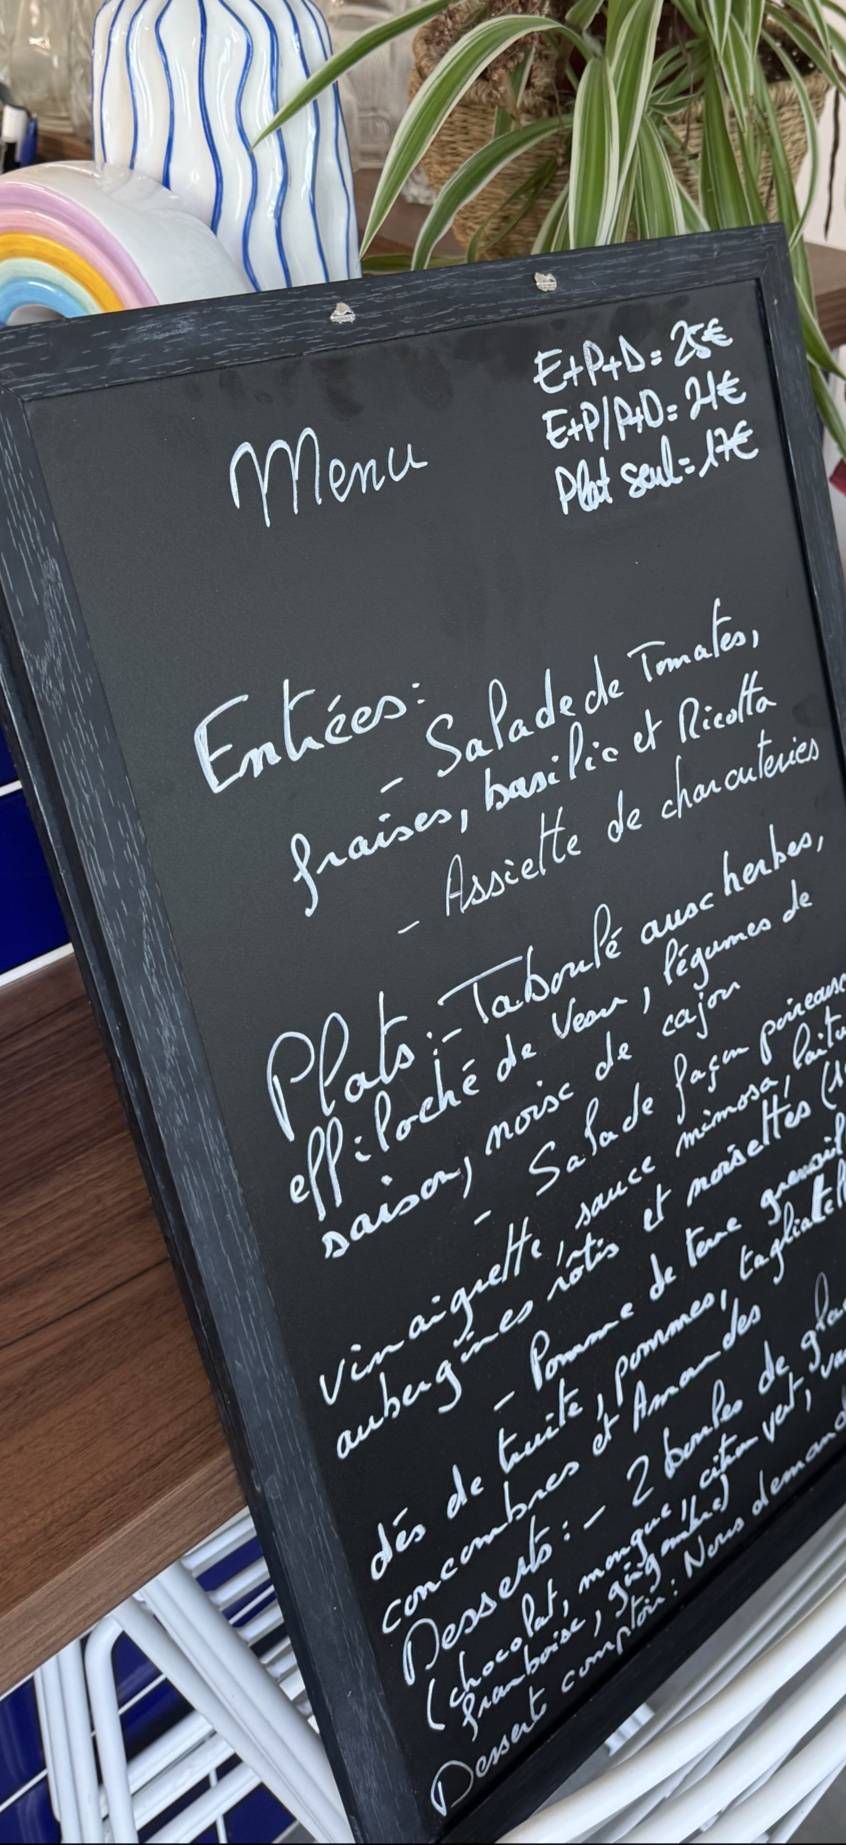 E+P+D = 25€
E+P/P+D = 21€
Plat seul = 17€
Menu
Entrées:
- Salade de Tomates,
fraises, basilic et Ricotta
- Assiette de charcuteries
Plats: - Taboulé aux herbes,
effiloché de veau, légumes de
saison, noix de cajou
- Salade façon poireaux
vinaigrette, sauce mimosa,
aubergines rôties et noisettes
- Pomme de terre
dés de truite, pommes,
concombres et Amandes
Desserts: - 2 boules de
(chocolat, mangue, citron vert,
framboise, gingembre)
Dessert comptoir: Nous